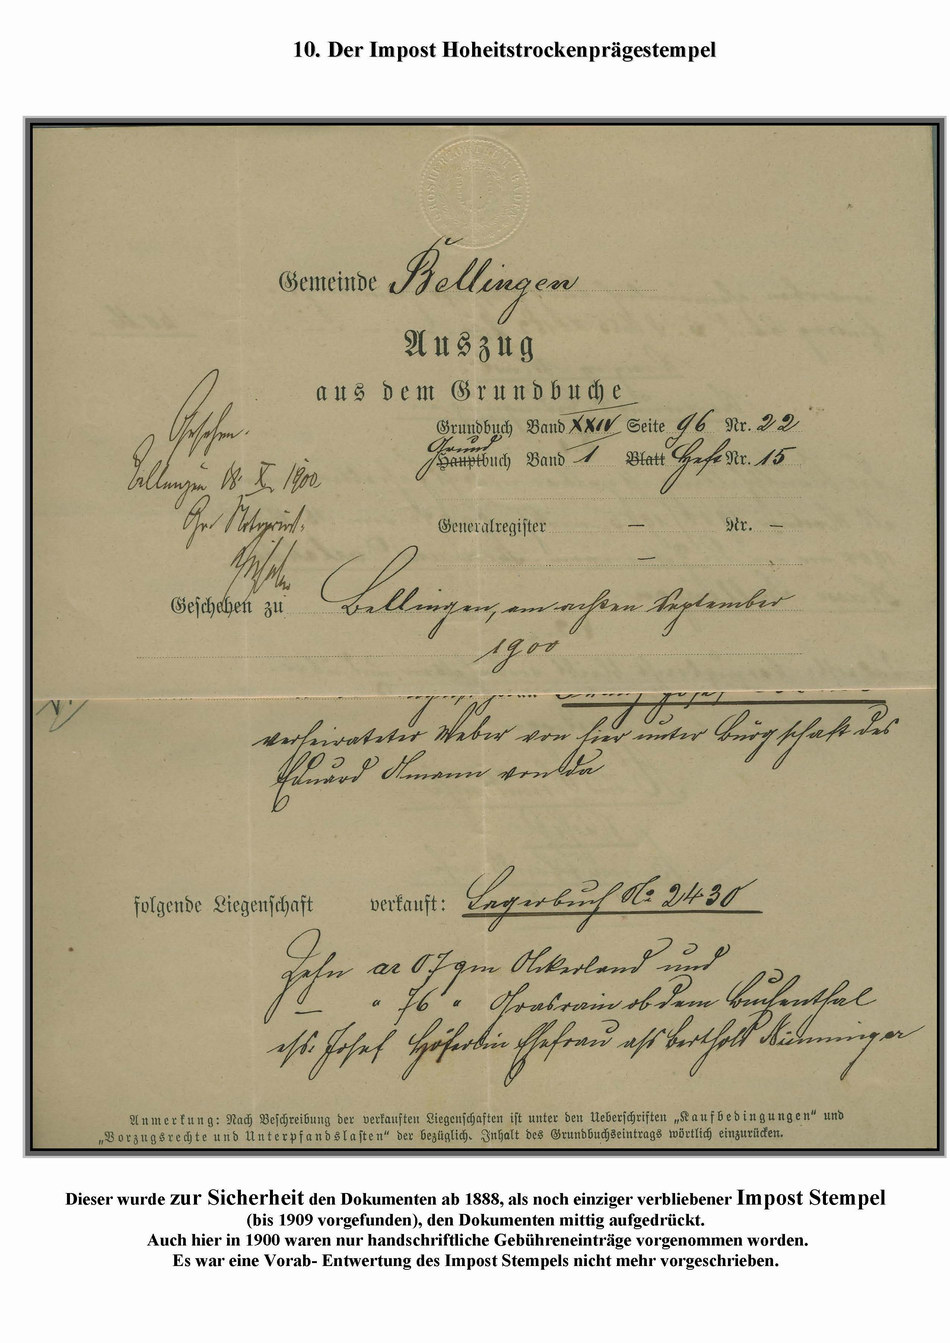 10. Der Impost Hoheitstrockenprägestempel
GROSHERZOGTUM BADEN
Gemeinde Bellingen
Auszug
aus dem Grundbuche
Grundbuch Band XXIV Seite 96 Nr. 22
Grund
Hauptbuch Band 1 Blatt Heft Nr. 15
Gesehen.
Bellingen 18. X. 1900
Gr. Notariat.
Generalregister — Nr. —
—
Geschehen zu Bellingen, am achten September
1900
verheirateter Weber von hier unter Bürgschaft des
Eduard Amann von da
folgende Liegenschaft verkauft: Lagerbuch No 2430
Zehn ar 07 qm Ackerland und
— " 76 " Grasrain ob dem Buchenthal
es. Josef Höferlin Ehefrau as Berthold Nunninger
Anmerkung: Nach Beschreibung der verkauften Liegenschaften ist unter den Ueberschriften „Kaufbedingungen“ und
„Vorzugsrechte und Unterpfandslasten“ der bezüglich. Inhalt des Grundbuchseintrags wörtlich einzurücken.
Dieser wurde zur Sicherheit den Dokumenten ab 1888, als noch einziger verbliebener Impost Stempel
(bis 1909 vorgefunden), den Dokumenten mittig aufgedrückt.
Auch hier in 1900 waren nur handschriftliche Gebühreneinträge vorgenommen worden.
Es war eine Vorab- Entwertung des Impost Stempels nicht mehr vorgeschrieben.